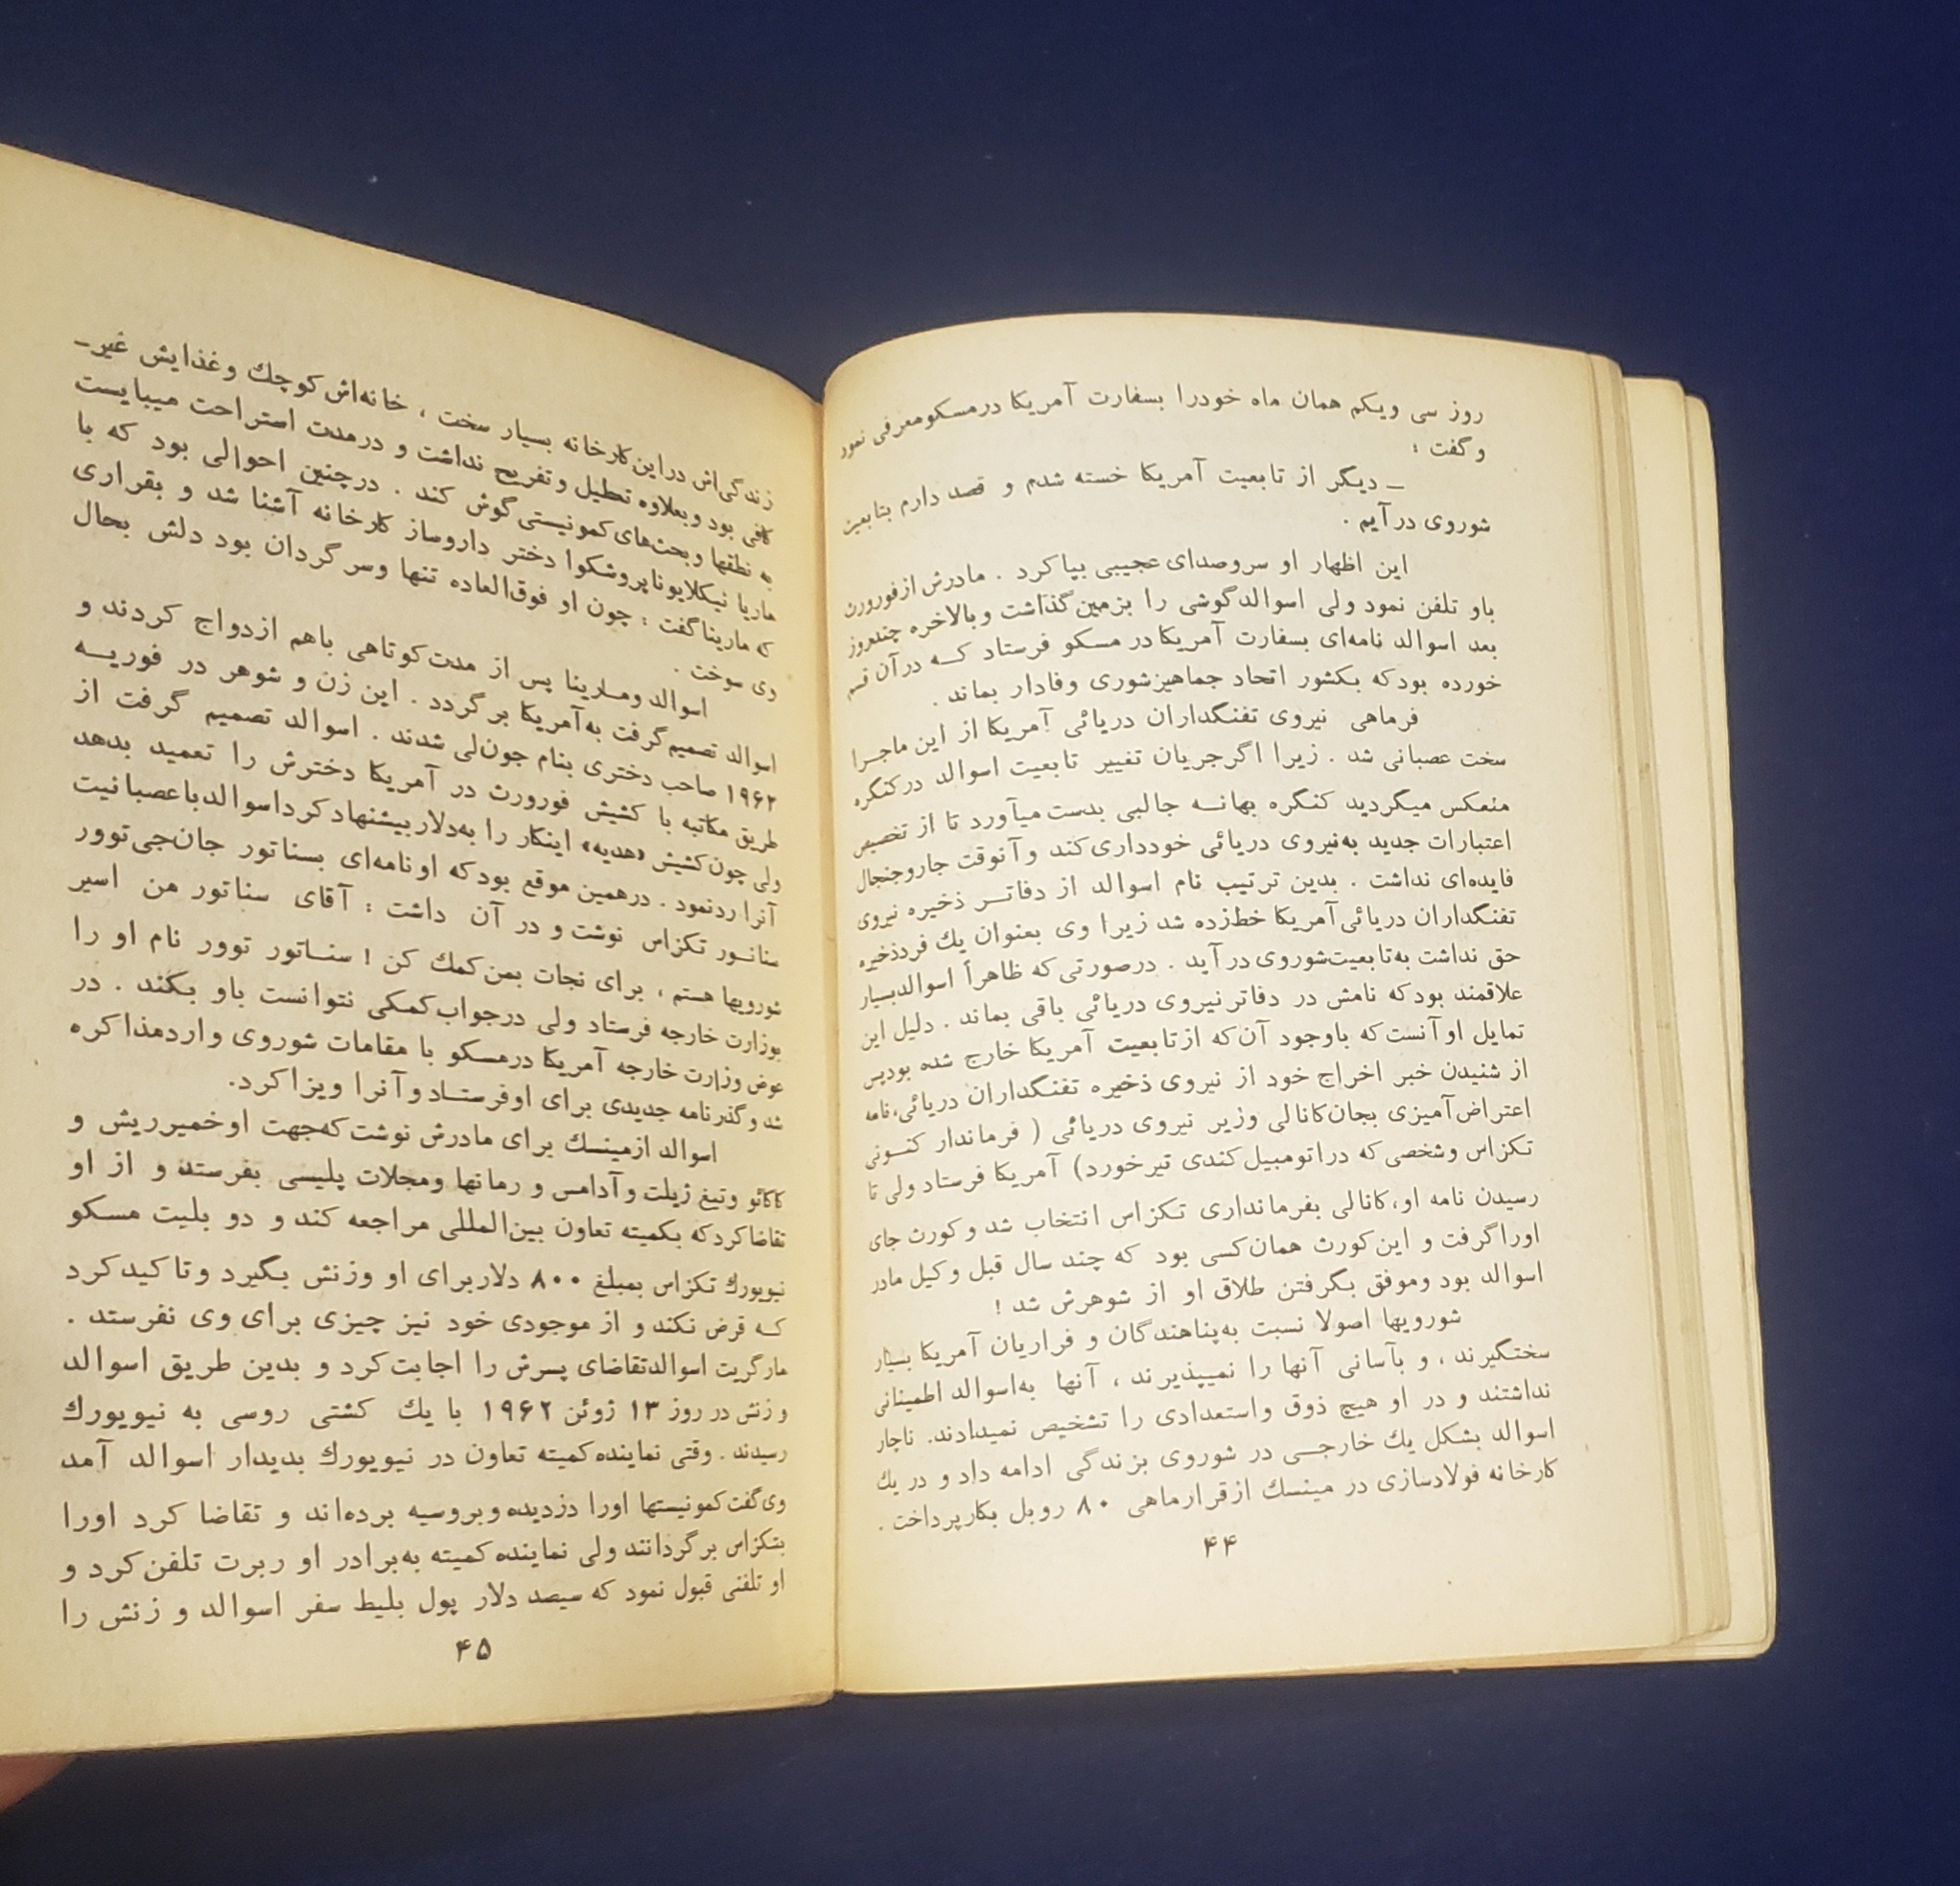 روز سی ویکم همان ماه خودرا بسفارت آمریکا درمسکومعرفی نمود
وگفت :
– دیگر از تابعیت آمریکا خسته شدم و قصد دارم بتابعیت
شوروی درآیم .
این اظهار او سروصدای عجیبی بپاکرد . مادرش ازفورورت
باو تلفن نمود ولی اسوالدگوشی را بزمین‌گذاشت وبالاخره چندروز
بعد اسوالد نامه‌ای بسفارت آمریکا در مسکو فرستاد کـه درآن قسم
خورده بودکه بکشور اتحاد جماهیزشوری وفادار بماند .
فرماهی نیروی تفنگداران دریائی آمریکا از این ماجـرا
سخت عصبانی شد . زیرا اگرجریان تغییر تابعیت اسوالد درکنگره
منعکس میگردید کنگره بهانـه جالبی بدست میآورد تا از تخصیص
اعتبارات جدید به‌نیروی دریائی خودداری‌کند وآنوقت جاروجنجال
فایده‌ای نداشت . بدین ترتیب نام اسوالد از دفاتـر ذخیره نیروی
تفنگداران دریائی‌آمریکا خط‌زده شد زیرا وی بعنوان یك فردذخیره
حق نداشت به‌تابعیت‌شوروی درآید . درصورتی‌که ظاهراً اسوالدبسیار
علاقمند بودکه نامش در دفاترنیروی دریائی باقی بماند . دلیل این
تمایل اوآنست‌که باوجود آن‌که ازتابعیت آمریکا خارج شده بودپس
از شنیدن خبر اخراج خود از نیروی ذخیره تفنگداران دریائی،نامه
اعتراض‌آمیزی بجان‌کانالی وزیر نیروی دریائی ( فرماندار کنـونی
تکزاس وشخصی‌که دراتومبیل‌کندی تیرخورد) آمریکا فرستاد ولی تا
رسیدن نامه او،کانالی بفرمانداری تکزاس انتخاب شد وکورث جای
اوراگرفت و این‌کورث همان‌کسی بود که چند سال قبل وکیل مادر
اسوالد بود وموفق بگرفتن طلاق او از شوهرش شد !
شورویها اصولا نسبت به‌پناهندگان و فراریان آمریکا بسیار
سختگیرند ، و بآسانی آنها را نمیپذیرند ، آنها به‌اسوالد اطمینانی
نداشتند و در او هیچ ذوق واستعدادی را تشخیص نمیدادند. ناچار
اسوالد بشکل یك خارجـی در شوروی بزندگی ادامه داد و در یك
کارخانه فولادسازی در مینسك ازقرارماهی ۸۰ روبل بکارپرداخت .
۴۴
زندگی‌اش دراین‌کارخانه بسیار سخت ، خانه‌اش‌کوچك وغذایش غیر–
کافی بود وبعلاوه تعطیل وتفریح نداشت و درمدت استراحت میبایست
به نطقها وبحث‌های‌کمونیستی‌گوش کند . درچنین احوالی بود که با
ماریا نیکلایوناپروشکوا دختر داروساز کارخانه آشنا شد و بقراری
که ماریناگفت : چون او فوق‌العاده تنها وسرگردان بود دلش بحال
وی سوخت .
اسوالد ومـارینا پس از مدت‌کوتاهی باهم ازدواج کردند و
اسوالد تصمیم‌گرفت به‌آمریکا برگردد . این زن و شوهر در فوریـه
۱۹۶۲ صاحب دختری بنام جون‌لی شدند . اسوالد تصمیم گرفت از
طریق مکاتبه با کشیش فورورث در آمریکا دخترش را تعمید بدهد
ولی چون‌کشیش «هدیه» اینکار را به‌دلاربیشنهادکرداسوالدباعصبانیت
آنرا ردنمود . درهمین موقع بودکه اونامه‌ای بسناتور جان‌جی‌توور
سناتـور تکزاس نوشت و در آن داشت : آقای سناتور من اسیر
شورویها هستم ، برای نجات بمن‌کمك کن ! سنـاتور توور نام او را
بوزارت خارجه فرستاد ولی درجواب‌کمکی نتوانست باو بکند . در
عوض وزارت خارجه آمریکا درمسکو با مقامات شوروی واردمذاکره
شد وگذرنامه جدیدی برای اوفرستـاد وآنرا ویزاکرد.
اسوالد ازمینسك برای مادرش نوشت‌که‌جهت اوخمیرریش و
کاکائو وتیغ ژیلت وآدامس و رمانها ومجلات پلیسی بفرستد و از او
تقاضاکردکه بکمیته تعاون بین‌المللی مراجعه کند و دو بلیت مسکو
نیویورك تکزاس بمبلغ ۸۰۰ دلاربرای او وزنش بگیرد وتاکیدکرد
کـه قرض نکند و از موجودی خود نیز چیزی برای وی نفرستد .
مارگریت اسوالدتقاضای پسرش را اجابت‌کرد و بدین طریق اسوالد
و زنش در روز ۱۳ ژوئن ۱۹۶۲ با یك کشتی روسی به نیویورك
رسیدند . وقتی نماینده‌کمیته تعاون در نیویورك بدیدار اسوالد آمد
وی‌گفت‌کمونیستها اورا دزدیده وبروسیه برده‌اند و تقاضا کرد اورا
بتکزاس برگردانند ولی نماینده‌کمیته به‌برادر او ربرت تلفن‌کرد و
او تلفنی قبول نمود که سیصد دلار پول بلیط سفر اسوالد و زنش را
۴۵